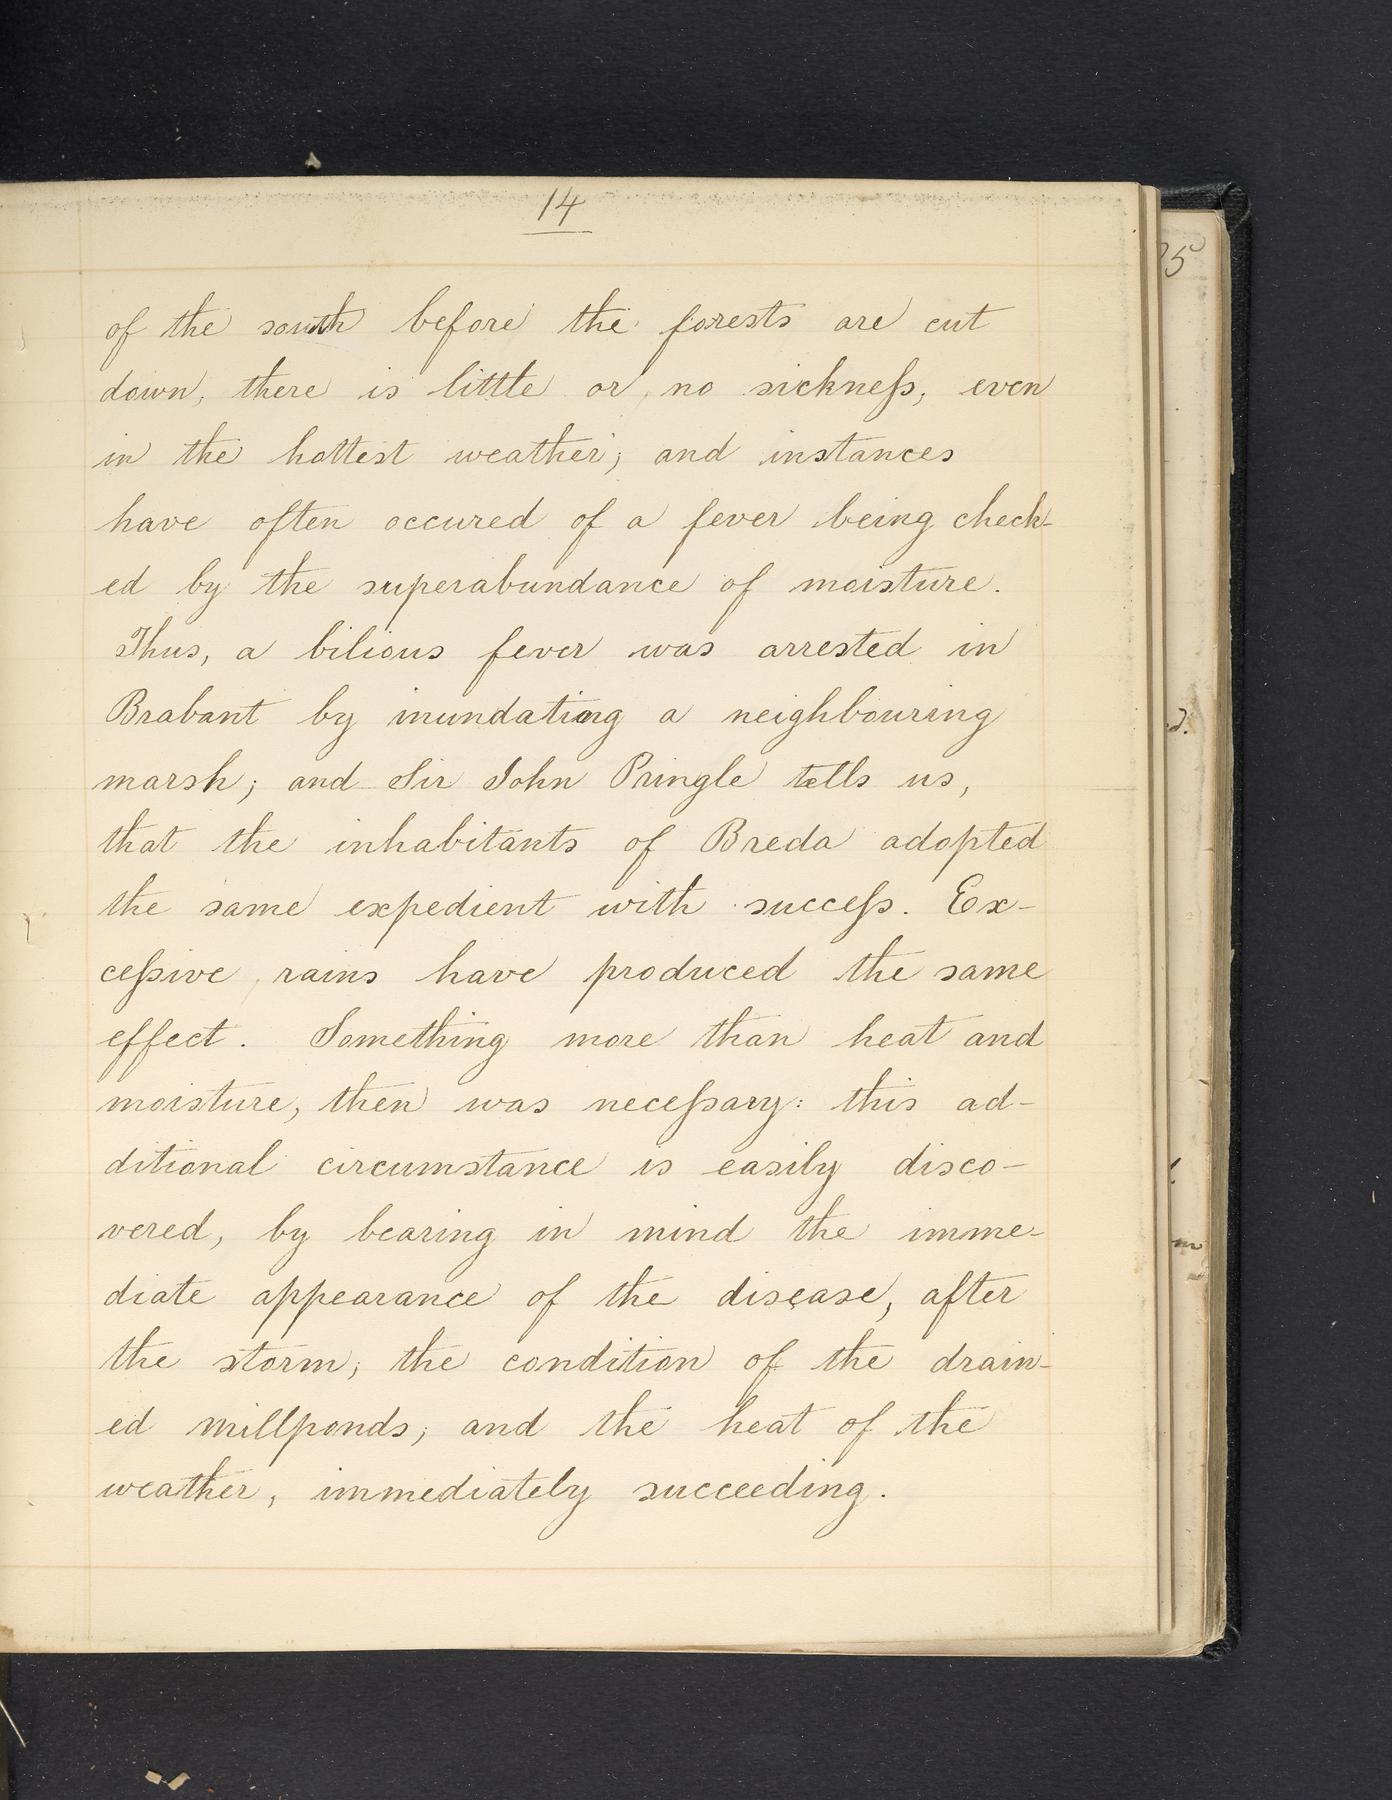 14
of the south before the forests are cut
down, there is little or no sickneſs, even
in the hottest weather; and instances
have often occured of a fever being check-
ed by the superabundance of moisture.
Thus, a bilious fever was arrested in
Brabant by inundating a neighbouring
marsh; and Sir John Pringle tells us,
that the inhabitants of Breda adopted
the same expedient with succeſs. Ex-
ceſsive rains have produced the same
effect. Something more than heat and
moisture, then was neceſsary: this ad-
ditional circumstance is easily disco-
vered, by bearing in mind the imme-
diate appearance of the disease, after
the storm; the condition of the drain-
ed millponds; and the heat of the
weather, immediately succeeding.